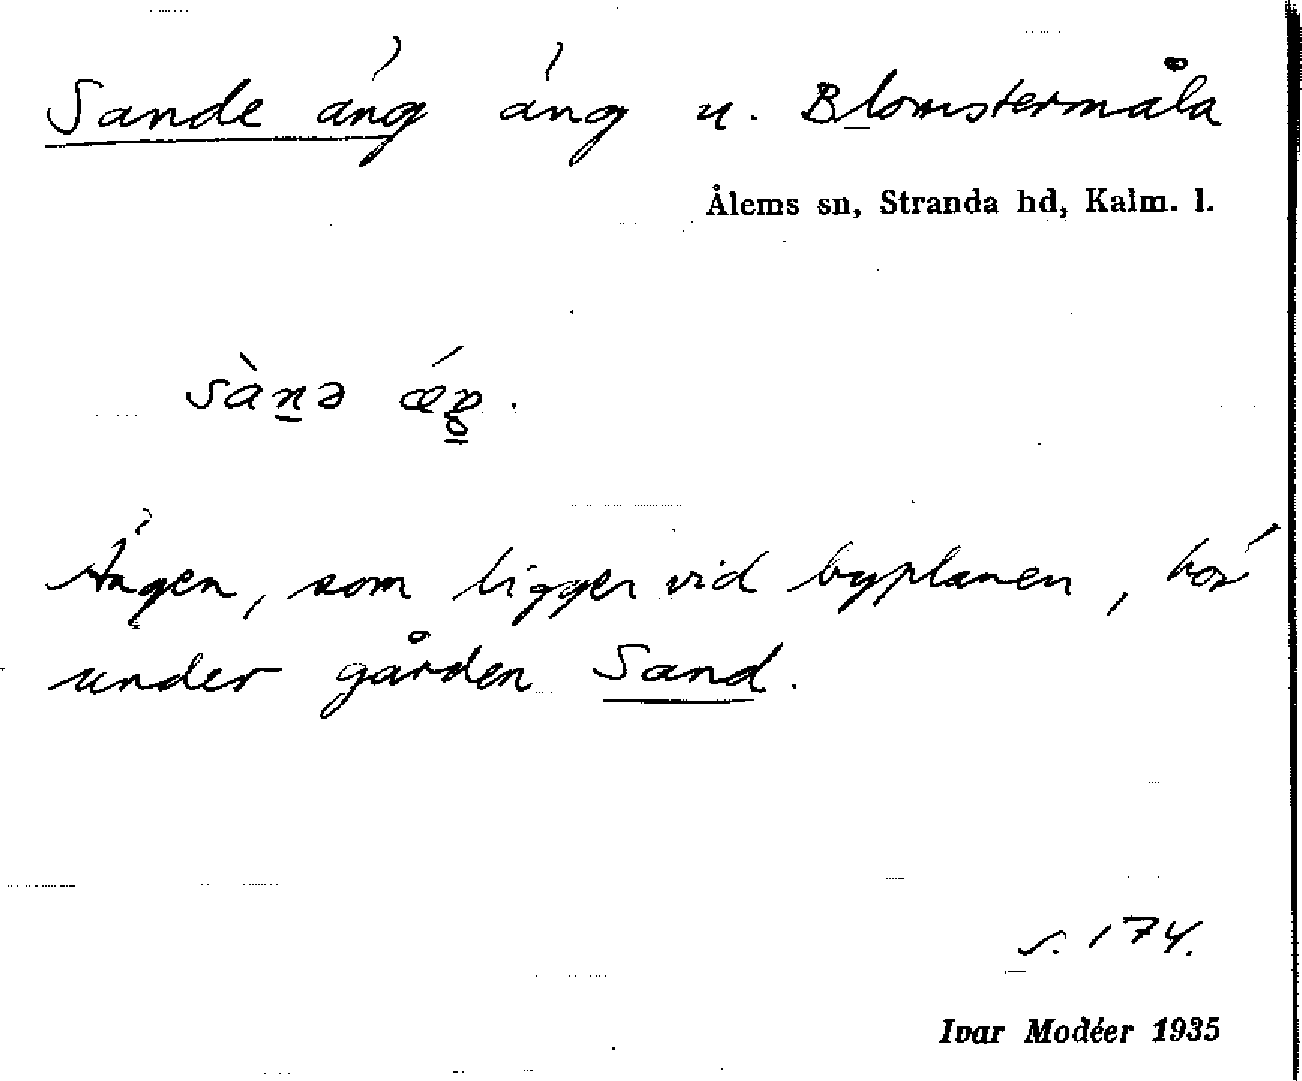 Sande äng äng u. Blomstermåla
Ålems sn, Stranda hd, Kalm. l.
sànə ǽŋ.
Ängen, som ligger vid byplanen, hör
under gården Sand.
s. 174.
Ivar Modéer 1935